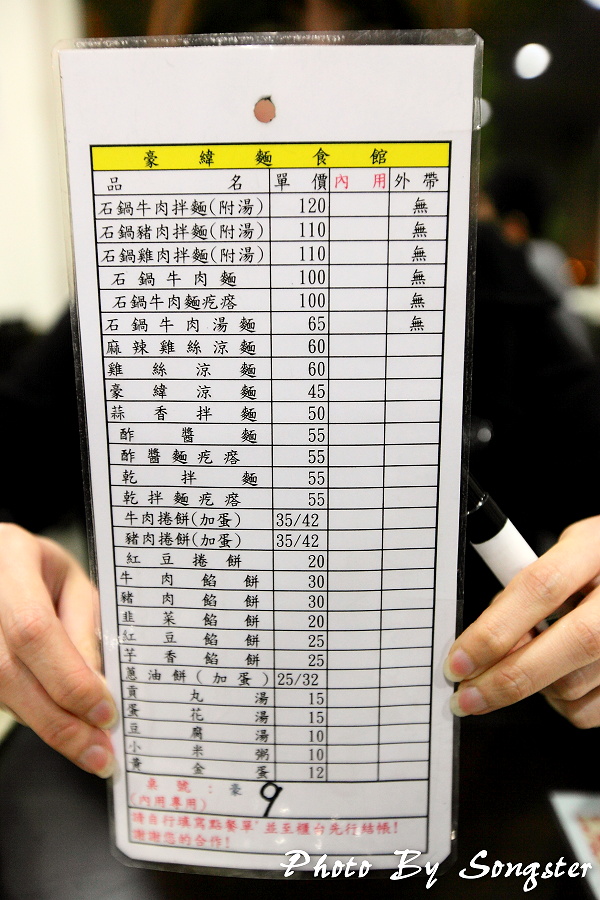 豪緯麵食館
品名 單價 內用 外帶
石鍋牛肉拌麵(附湯) 120 無
石鍋豬肉拌麵(附湯) 110 無
石鍋雞肉拌麵(附湯) 110 無
石鍋牛肉麵 100 無
石鍋牛肉麵疙瘩 100 無
石鍋牛肉湯麵 65 無
麻辣雞絲涼麵 60
雞絲涼麵 60
豪緯涼麵 45
蒜香拌麵 50
酢醬麵 55
酢醬麵疙瘩 55
乾拌麵 55
乾拌麵疙瘩 55
牛肉捲餅(加蛋) 35/42
豬肉捲餅(加蛋) 35/42
紅豆捲餅 20
牛肉餡餅 30
豬肉餡餅 30
韭菜餡餅 20
紅豆餡餅 25
芋香餡餅 25
蔥油餅(加蛋) 25/32
貢丸湯 15
蛋花湯 15
豆腐湯 10
小米粥 10
黃金蛋 12
桌號:豪 9
(內用專用)
請自行填寫點餐單,並至櫃台先行結帳!
謝謝您的合作!
Photo By Songster